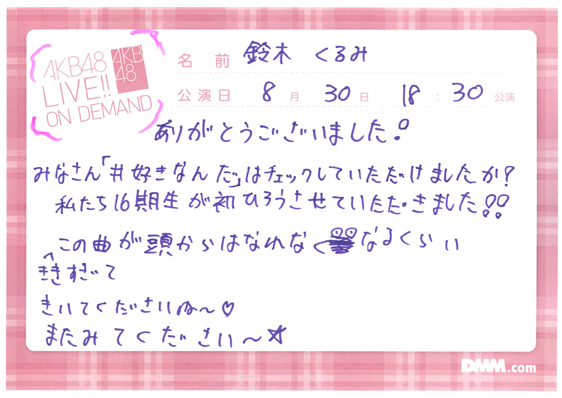 AKB48
LIVE!!
ON DEMAND
AKB
48
名前 鈴木 くるみ
公演日 8月 30日 18:30公演
ありがとうございました!
みなさん「#好きなんだ」はチェックしていただけましたか?
私たち16期生が初ひろうさせていただきました!!
この曲が頭からはなれな なるくらい
ききすぎて
きいてくださいね〜♡
またみてください〜☆
DMM.com